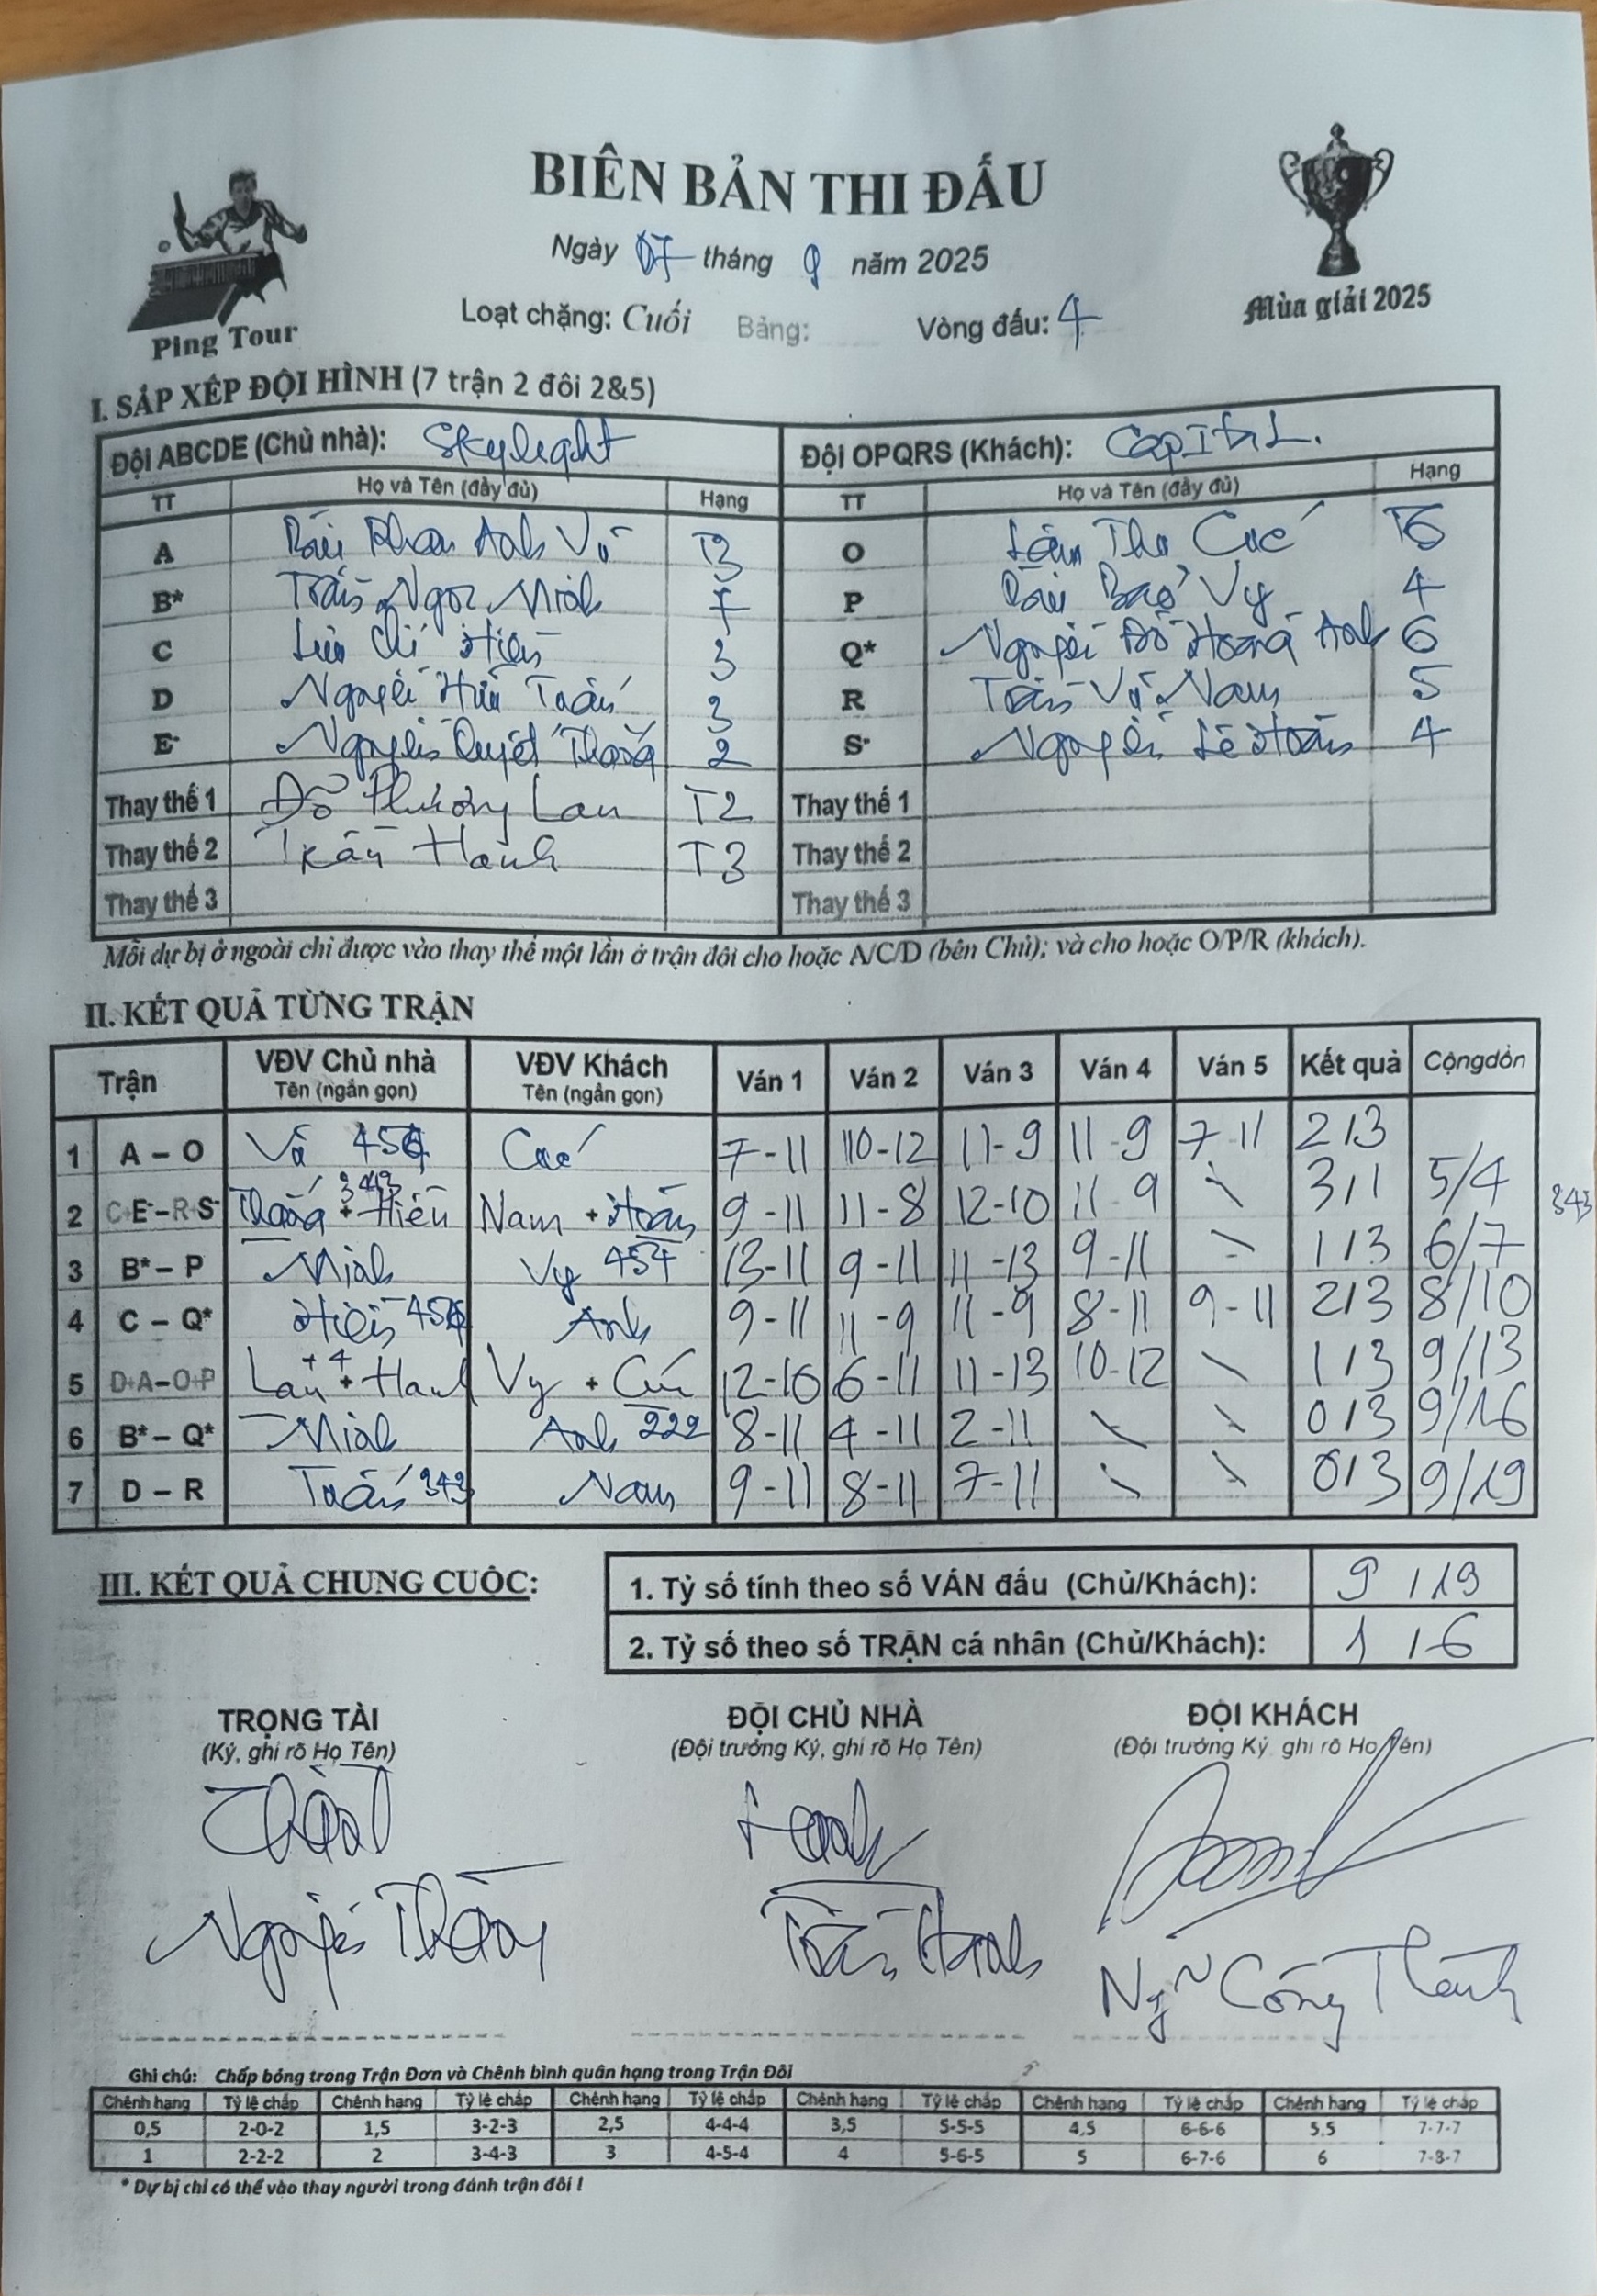 BIÊN BẢN THI ĐẤU
Ngày 07 tháng 9 năm 2025
Ping Tour
Mùa giải 2025
Loạt chặng: Cuối Bảng: Vòng đấu: 4
I. SẮP XẾP ĐỘI HÌNH (7 trận 2 đôi 2&5)
Đội ABCDE (Chủ nhà): Skylight Đội OPQRS (Khách): CapItaL.
TT Họ và Tên (đầy đủ) Hạng TT Họ và Tên (đầy đủ) Hạng
A Bùi Phan Anh Vũ T3 O Lâm Thu Cúc T5
B* Trần Ngọc Minh 7 P Bùi Bảo Vy 4
C Lưu Chí Hiếu 3 Q* Nguyễn Đỗ Hoàng Anh 6
D Nguyễn Hữu Toán 3 R Trần Vũ Nam 5
E- Nguyễn Quyết Thắng 2 S- Nguyễn Lê Hoàn 4
Thay thế 1 Đỗ Phương Lan T2 Thay thế 1
Thay thế 2 Trần Hanh T3 Thay thế 2
Thay thế 3 Thay thế 3
Mỗi dự bị ở ngoài chỉ được vào thay thế một lần ở trận đôi cho hoặc A/C/D (bên Chủ); và cho hoặc O/P/R (khách).
II. KẾT QUẢ TỪNG TRẬN
Trận VĐV Chủ nhà VĐV Khách Ván 1 Ván 2 Ván 3 Ván 4 Ván 5 Kết quả Cộng dồn
Tên (ngắn gọn) Tên (ngắn gọn)
1 A – O Vũ Cúc 7-11 10-12 11-9 11-9 7-11 2/3
2 C+E- – R+S- Thắng + Hiếu 343 Nam + Hoàn 9-11 11-8 12-10 11-9 \ 3/1 5/4 343
3 B* – P Minh Vy 454 13-11 9-11 11-13 9-11 \ 1/3 6/7
4 C – Q* Hiếu Anh 9-11 11-9 11-9 8-11 9-11 2/3 8/10
5 D+A – O+P Lan + Hanh Vy + Cúc 12-10 6-11 11-13 10-12 \ 1/3 9/13
6 B* – Q* Minh Anh 222 8-11 4-11 2-11 \ \ 0/3 9/16
7 D – R Toán 343 Nam 9-11 8-11 7-11 \ \ 0/3 9/19
III. KẾT QUẢ CHUNG CUỘC:
1. Tỷ số tính theo số VÁN đấu (Chủ/Khách): 9 / 19
2. Tỷ số theo số TRẬN cá nhân (Chủ/Khách): 1 / 6
TRỌNG TÀI ĐỘI CHỦ NHÀ ĐỘI KHÁCH
(Ký, ghi rõ Họ Tên) (Đội trưởng Ký, ghi rõ Họ Tên) (Đội trưởng Ký, ghi rõ Họ Tên)
Trần Hanh Ngn Công Thành
Ghi chú: Chấp bóng trong Trận Đơn và Chênh bình quân hạng trong Trận Đôi
Chênh hạng Tỷ lệ chấp Chênh hạng Tỷ lệ chấp Chênh hạng Tỷ lệ chấp Chênh hạng Tỷ lệ chấp Chênh hạng Tỷ lệ chấp Chênh hạng Tỷ lệ chấp
0,5 2-0-2 1,5 3-2-3 2,5 4-4-4 3,5 5-5-5 4,5 6-6-6 5,5 7-7-7
1 2-2-2 2 3-4-3 3 4-5-4 4 5-6-5 5 6-7-6 6 7-8-7
* Dự bị chỉ có thể vào thay người trong đánh trận đôi !